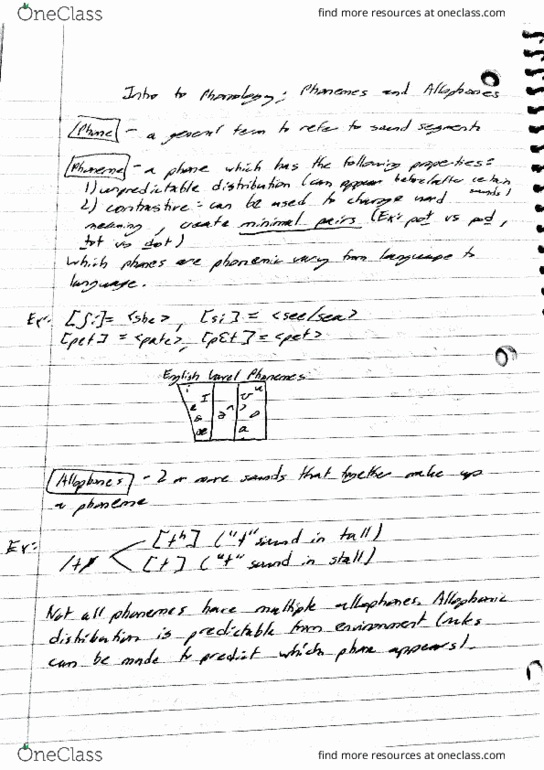 OneClass
find more resources at oneclass.com
Intro to Phonology: Phonemes and Allophones
Phone - a general term to refer to sound segments
Phoneme - a phone which has the following properties:
1) unpredictable distribution (can appear before/after certain sounds)
2) contrastive: can be used to change word
meaning, create minimal pairs (Ex: pot vs pod,
tot vs dot)
Which phones are phonemic vary from language to
language.
Ex: [ʃi] = <she>, [si] = <see/sea>
[pet] = <pate>, [pɛt] = <pet>
English Vowel Phonemes
i I ʊ u
e ə ʌ ɔ o
æ a
Allophones - 2 or more sounds that together make up
a phoneme
Ex: /t/ [tʰ] ("t" sound in tall)
[t] ("t" sound in stall)
Not all phonemes have multiple allophones. Allophonic
distribution is predictable from environment (rules
can be made to predict which phone appears).
OneClass
find more resources at oneclass.com